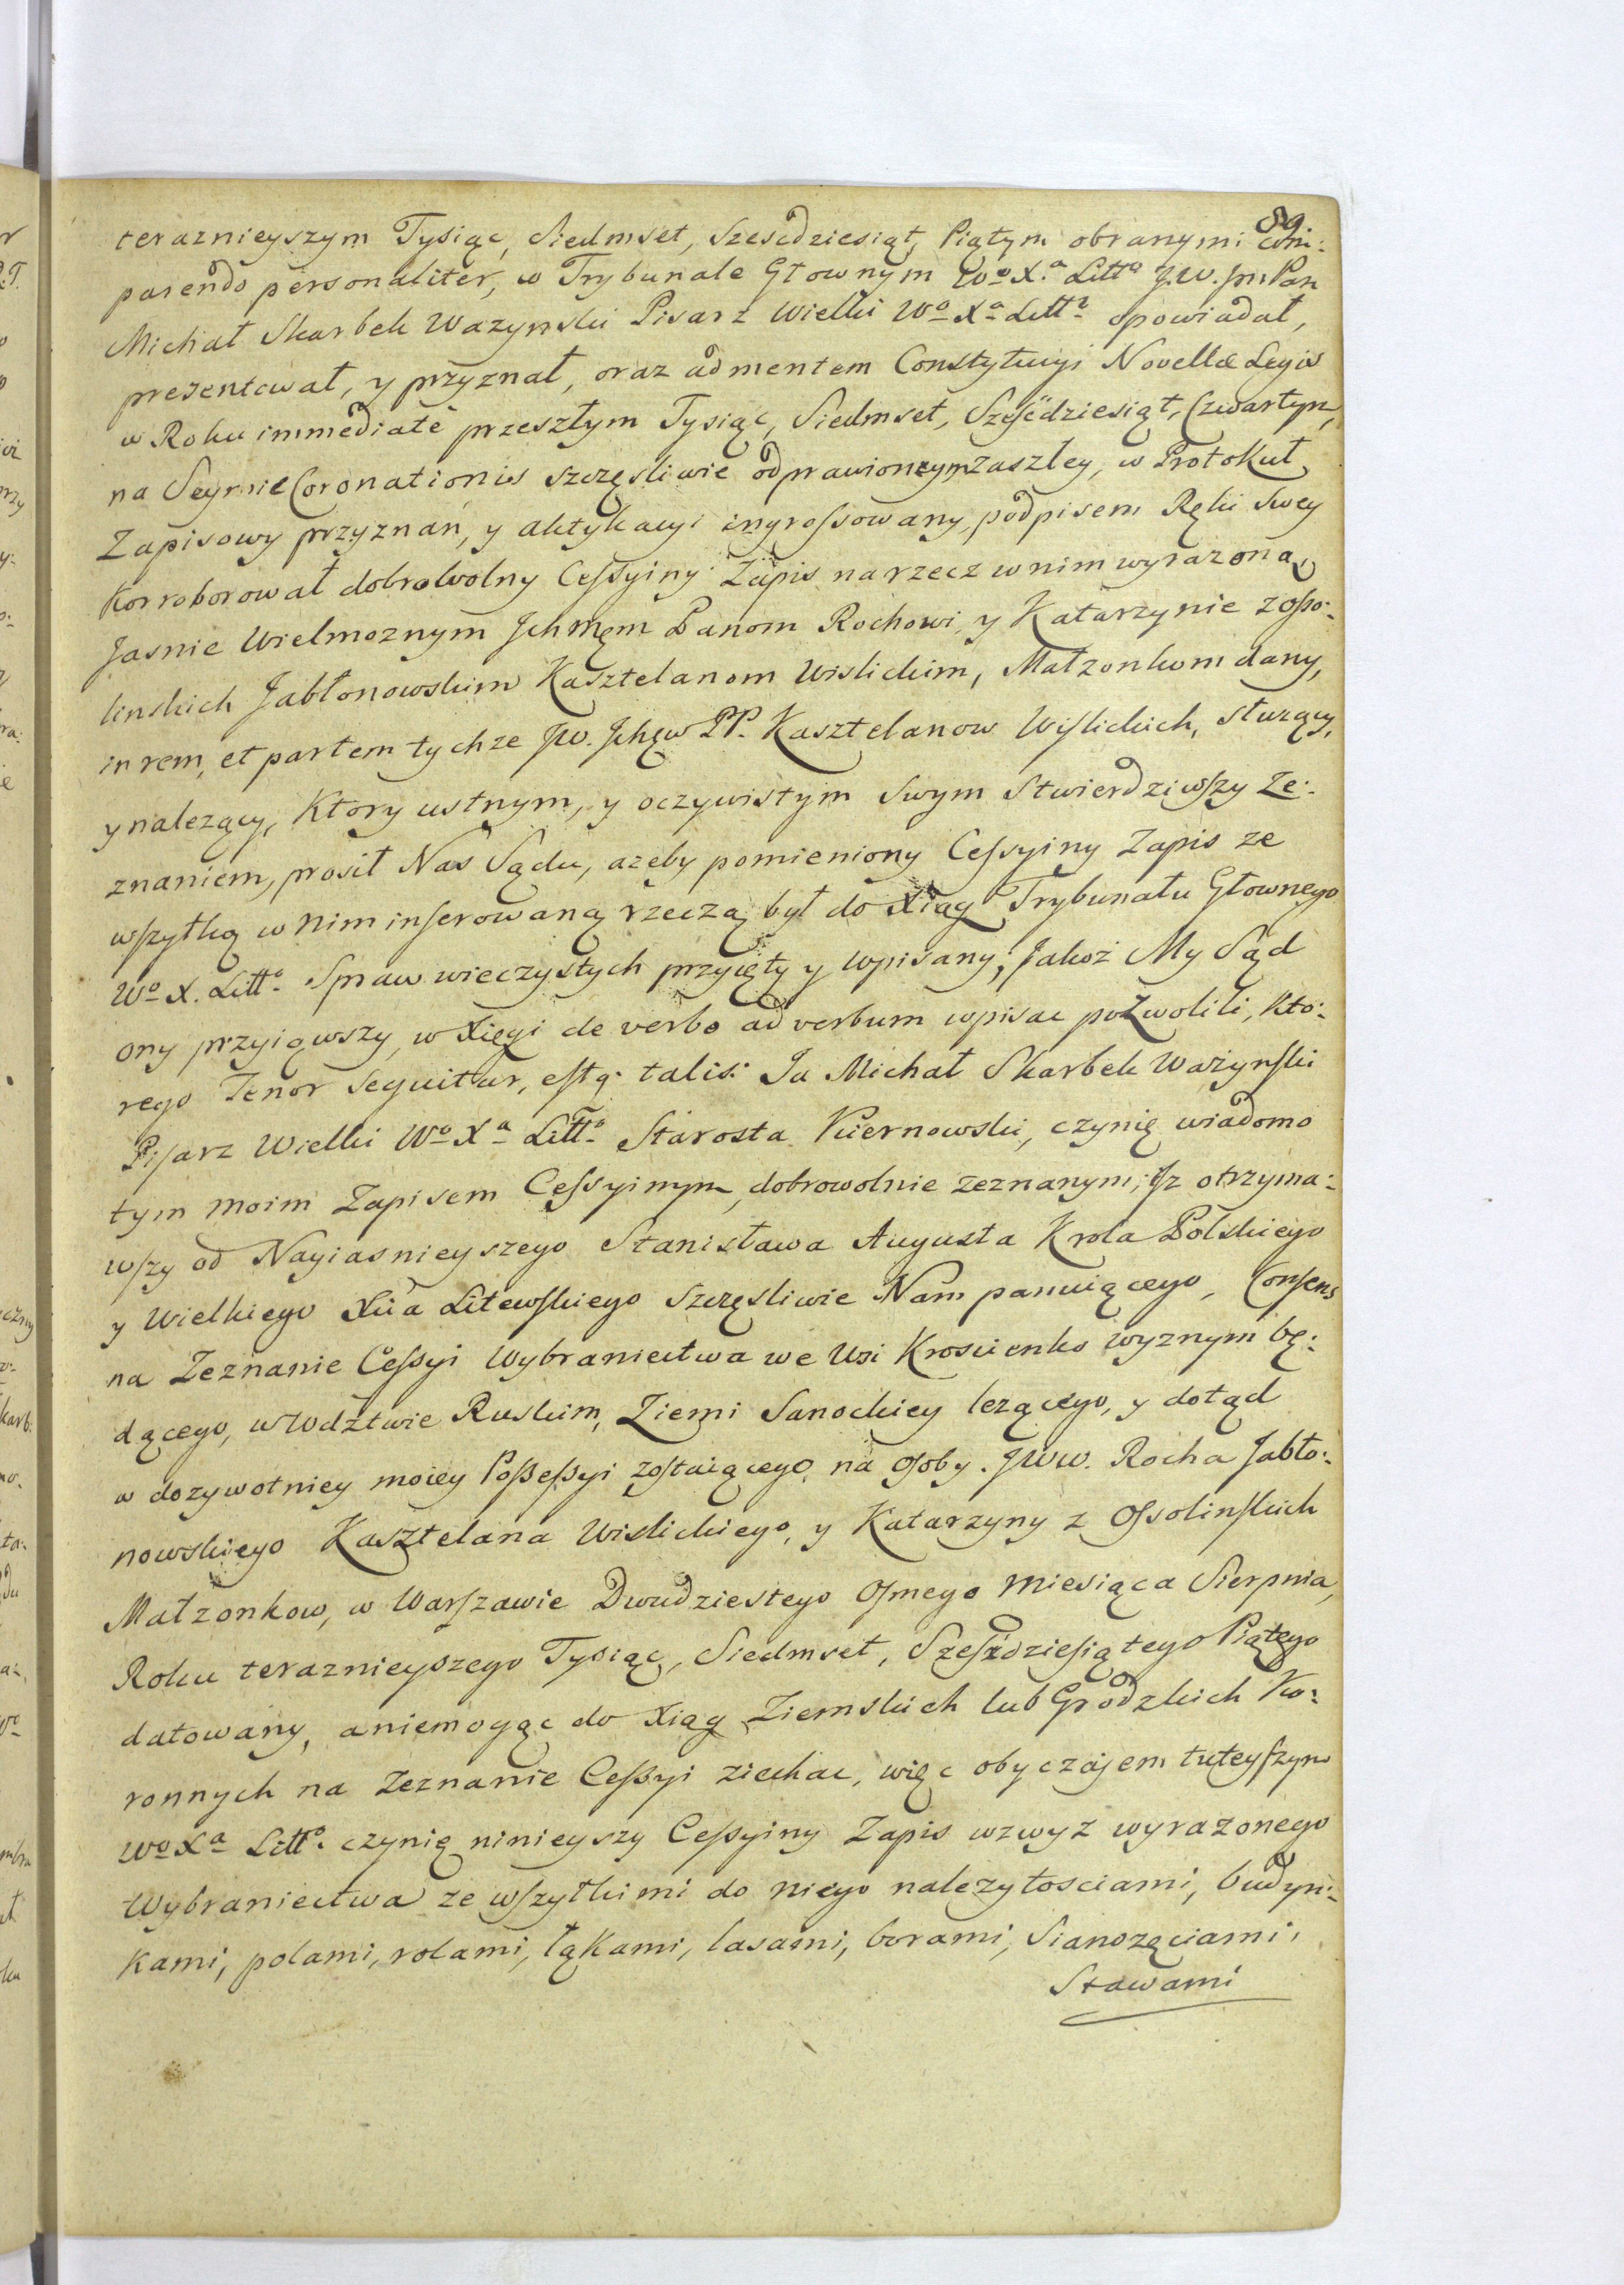 89.
teraznieyszym Tysiąc, Siedmset, Szescdziesiąt, Piątym obranymi com:
parendo personaliter, w Trybunale Głownym Wº Xª Littº J.W. Jm Pan
Michał Skarbek Wazynski Pisarz Wielki Wº Xª Littº opowiadał,
prezentował, y przyznał, oraz ad mentem Constytucyi Novellæ Legis
w Roku immediatè przeszłym Tysiąc, Siedmset, Sześćdziesiąt, Czwartym,
na Seymie Coronationis szczęsliwie odprawionym zaszłey, w Protokuł
Zapisowy przyznań, y aktykacyi ingrossowany, podpisem Ręki Swey
Korroborował dobrowolny Cessyiny Zapis na rzecz w nim wyrazoną,
Jasnie Wielmoznym Jchmęm Panom Rochowi, y Katarzynie z Osso:
linskich Jabłonowskim Kasztelanom Wislickim, Małzonkom dany,
in rem, et partem tychze JW. Jchgw PP. Kasztelanow Wislickich, słuzący,
y nalezący, Ktory ustnym, y oczywistym Swym Stwierdziwszy Ze:
znaniem, prosił Nas Sądu, azeby pomieniony Cessyiny Zapis ze
wszytką w nim inserowaną rzeczą był do Xiąg Trybunału Głownego
Wº X. Littº Spraw wieczystych przyięty y wpisany; Jakoż My Sąd
ony przyiąwszy, w Xięgi de verbo ad verbum wpisac pozwolili, Kto:
rego Tenor Sequitur, estq. talis: Ja Michał Skarbek Ważynski
Pisarz Wielki Wº Xª Littº Starosta Kiernowski, czynię wiadomo
tym moim Zapisem Cessyinym, dobrowolnie zeznanym; Jz otrzyma:
wszy od Nayiasnieyszego Stanisława Augusta Krola Polskiego
y Wielkiego Xcia Litewskiego Szczęsliwie Nam panuiącego, Consens
na Zeznanie Cessyi Wybraniectwa we Wsi Kroscienko wyznym bę:
dącego, w Wodztwie Ruskim, Ziemi Sanockiey lezącego, y dotąd
w dozywotniey moiey Possessyi zostaiącego, na osoby JWW. Rocha Jabło:
nowskiego Kasztelana Wislickiego, y Katarzyny z Ossolinskich
Małzonkow, w Warszawie Dwudziestego Osmego Miesiąca Sierpnia,
Roku teraznieyszego Tysiąc, Siedmset, Sześździesiątego Piątego
datowany, a niemogąc do Xiąg Ziemskich lub Grodzkich Ko:
ronnych na Zeznanie Cessyi ziechac, więc obyczajem tuteyszym
Wº Xª Littº czynię ninieyszy Cessyiny Zapis wzwyz wyrazonego
Wybraniectwa ze wszytkimi do niego nalezytosciami, budyn:
Kami, polami, rolami, łąKami, lasami, borami, Sianozęciami,
Stawami